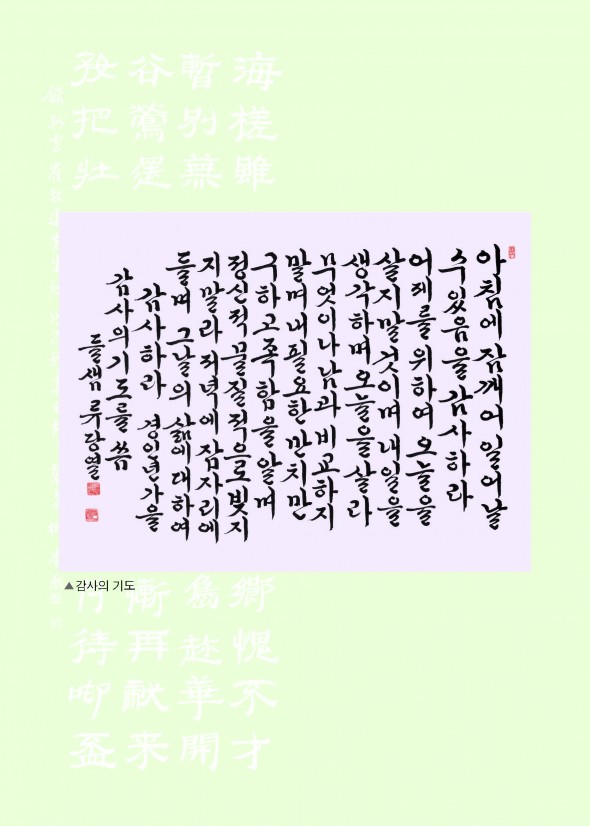 아침에 잠깨어 일어날
수 있음을 감사하라
어제를 위하여 오늘을
살지말것이며 내일을
생각하며 오늘을 살라
무엇이나 남과 비교하지
말며 내 필요한 만치만
구하고 족함을 알며
정신적 물질적으로 빚지
지말라 저녁에 잠자리에
들며 그날의 삶에 대하여
감사하라 경인년 가을
감사의 기도를 씀
들샘 류당열
▲감사의 기도
海槎雖
暫別
谷鶯遷
把壯
鄉愧不才
華開
再献来
待 盃